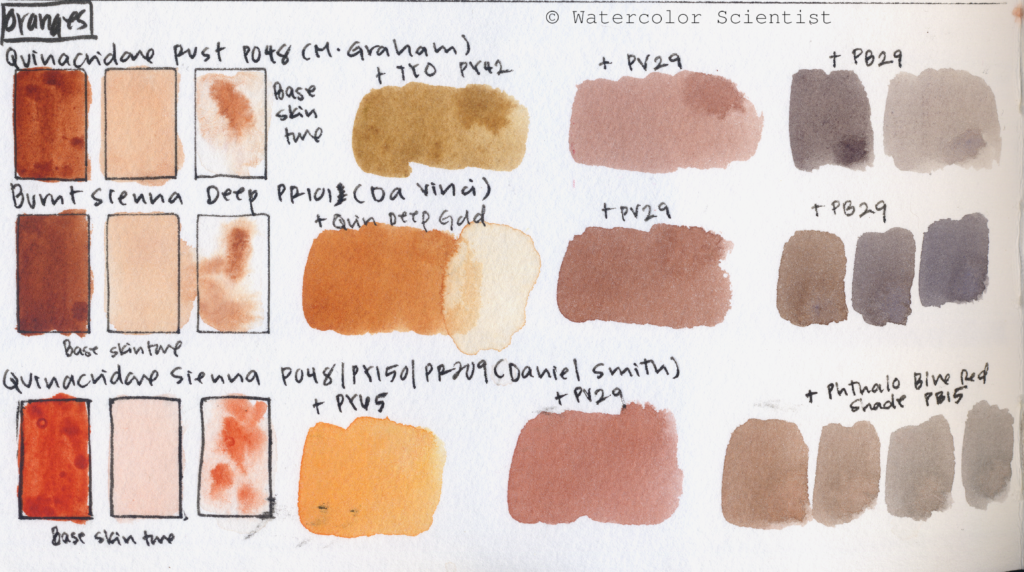 Oranges
© Watercolor Scientist
Quinacridone Rust PO48 (M. Graham)
+ TYO PY42
+ PV29
+ PB29
Base
skin
tone
Burnt Sienna Deep PR101 (Da Vinci)
+ Quin Deep Gold
+ PV29
+ PB29
Base skin tone
Quinacridone Sienna PO48/PY150/PR209 (Daniel Smith)
+ PY45
+ PV29
+ Phthalo Blue Red
Shade PB15
Base skin tone